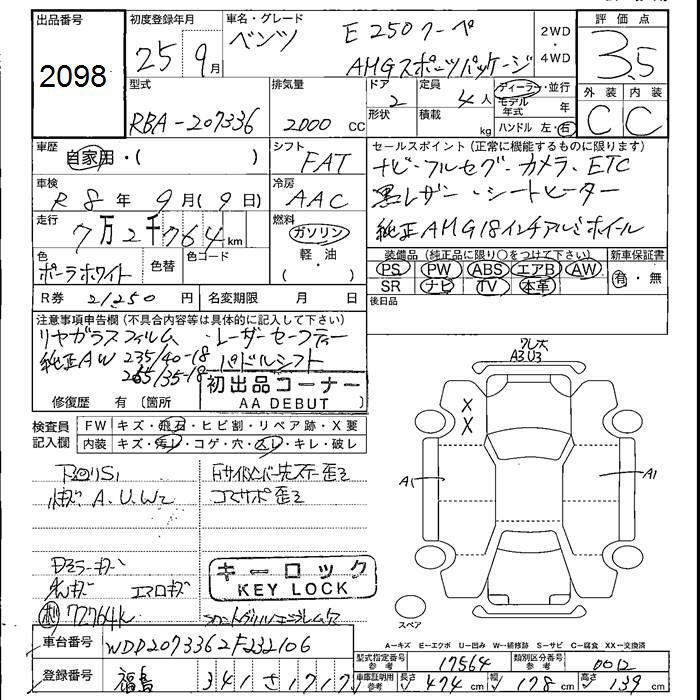 出品番号 初度登録年月 車名・グレード 評価点
2098
25 9月
ベンツ E250クーペ
AMGスポーツパッケージ
2WD
・
4WD
3.5
型式 RBA-207336
排気量 2000 CC
ドア 2
形状
定員 4人
積載 kg
ディーラー・並行
モデル年式 年
ハンドル 左・右
外装 内装
C C
車歴 自家用・( )
シフト FAT
セールスポイント (正常に機能するものに限ります)
ナビ・フルセグ・カメラ、ETC
黒レザー・シートヒーター
純正AMG18インチアルミホイール
車検 R8年 9月(9日)
冷房 AAC
走行 7万2千764km
燃料 ガソリン・軽・油
( )
色 ポーラホワイト
色替
色コード
装備品 (純正品に限り〇をつけて下さい) 新車保証書
PS PW ABS エアB AW
SR ナビ TV 本革
有・無
後日品
R券 21250円 名変期限 月 日
注意事項申告欄 (不具合内容等は具体的に記入して下さい)
リヤガラスフィルム ・レーダーセーフティー
純正AW 235/40-18 パドルシフト
265/35-18
初出品コーナー
AA DEBUT
修復歴 有(箇所 )
検査員記入欄
FW キズ・飛石・ヒビ割・リペア跡・X要
内装 キズ・汚れ・コゲ・穴・スレ・キレ・破レ
A、U、W2
コアサポ歪ミ
Dミラーキズ
エアロキズ
72764K
キーロック
KEY LOCK
A3 U3
X
X
A1
A1
スペア
A-キズ E-エクボ U-凹み W-補修跡 S-サビ C-腐食 XX-交換済
車台番号 WDD2073362F232106
登録番号 福島 341 さ 1717
型式指定番号 参考 17564
類別区分番号 参考 0012
車庫証明用 参考 長さ 474cm 幅 178cm 高さ 139cm